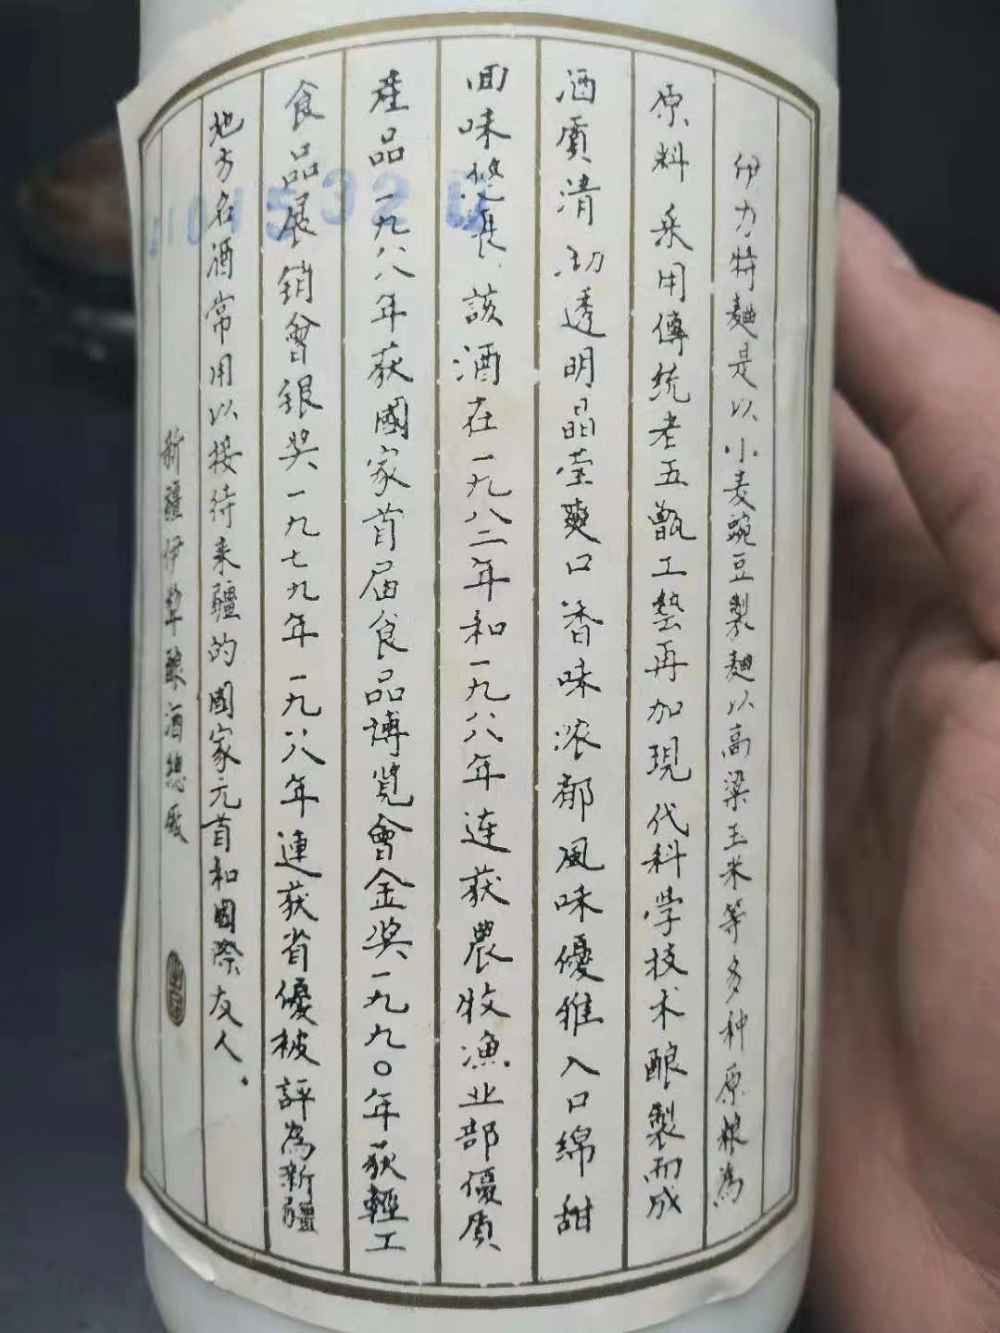 伊力特麯是以小麦豌豆製麯以高梁玉米等多种原粮為
原料采用傳統老五甑工藝再加現代科学技术酿製而成
酒质清沏透明晶莹爽口香味浓郁風味優雅入口绵甜
回味悠長該酒在一九八二年和一九八八年连获農牧漁业部優质
産品一九八八年获國家首届食品博览會金奖一九九〇年获輕工
食品展销會银奖一九七九年一九八八年連获省優被評為新疆
地方名酒常用以接待来疆的國家元首和國際友人.
新疆伊犂酿酒總廠